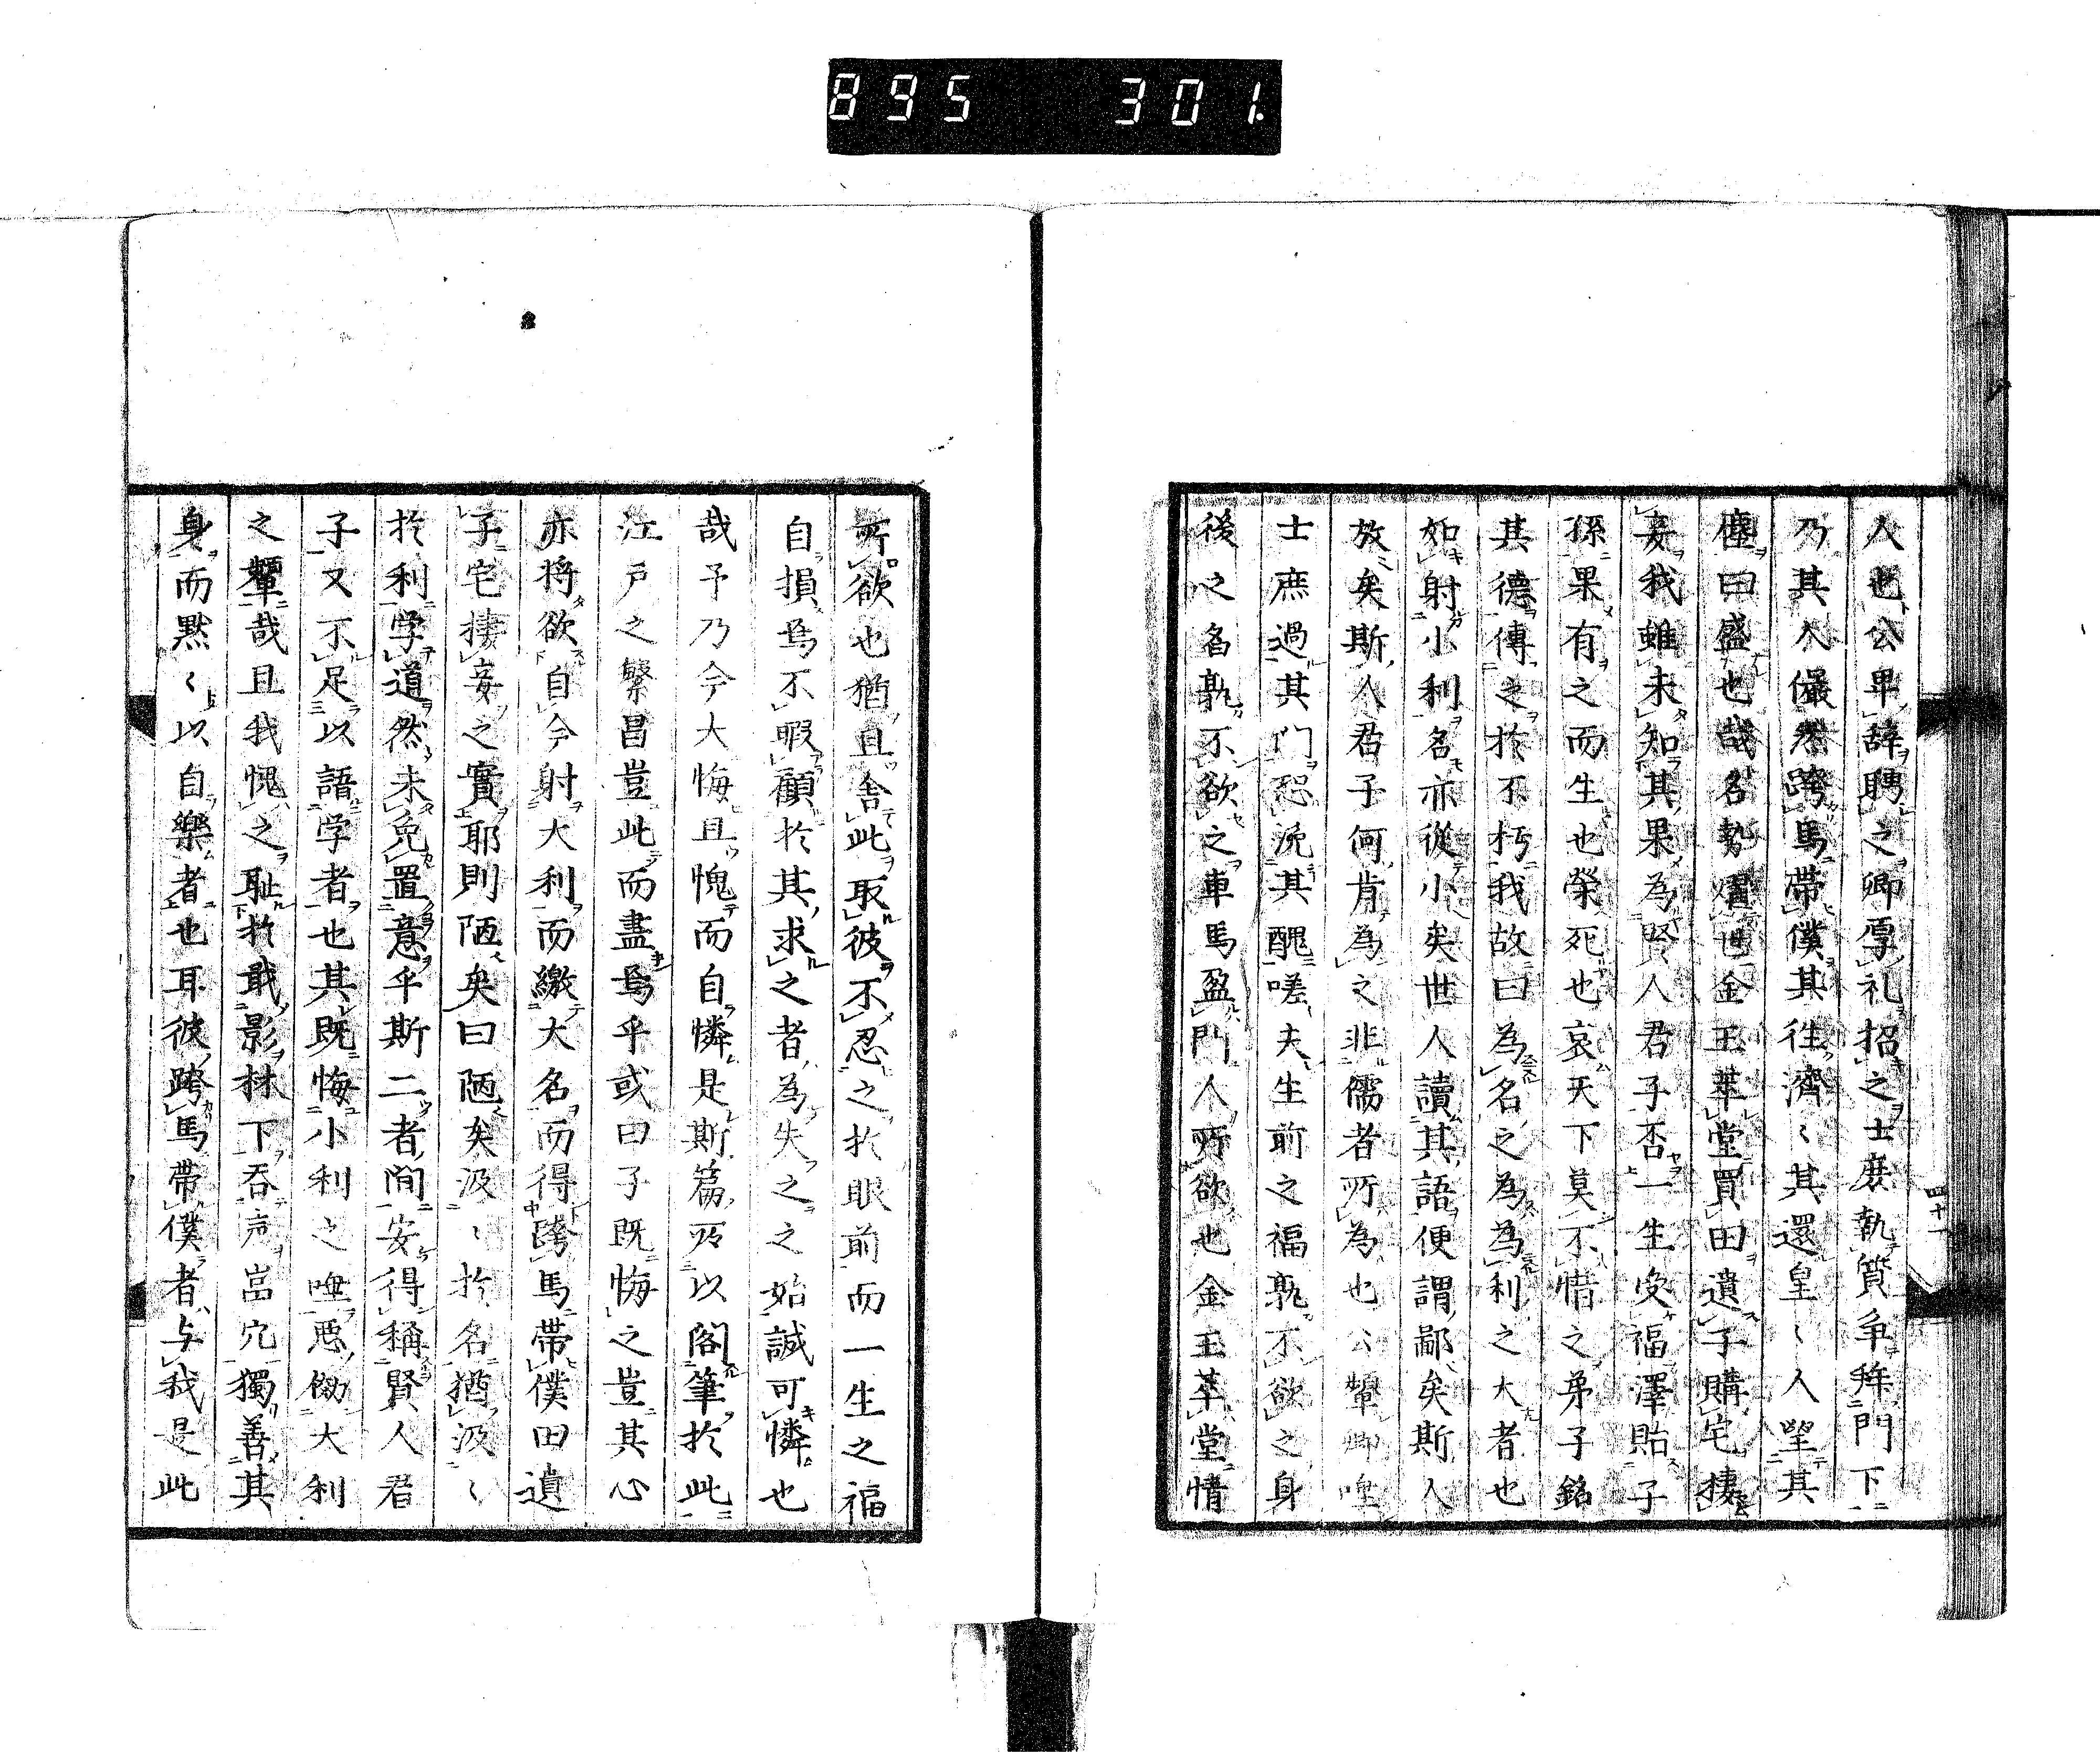 895 301.
人也公卑辞聘之卿厚礼招之士庶執贄争拜門下
乃其人儼然跨馬帯僕其往済〻其還皇〻人望其
塵曰盛也哉名勢燿世金玉萃堂買田遺子購宅棲
妾我雖未知其果為賢人君子否一生受福澤貽子
孫果有之而生也榮死也哀天下莫不惜之弟子銘
其徳傳之於不朽我故曰為名之為為利之大者也
如射小利名亦從小矣世人讀其語便謂鄙矣斯人
放矣斯人君子何肯為之非儒者所為也公輩卿唯
士庶過其門恐浼其醜嗟夫生前之福孰不欲之身
後之名孰不欲之車馬盈門人所欲也金玉萃堂情
四十一
所欲也猶且舎此取彼不忍之於眼前而一生之福
自損焉不暇顧於其求之者為失之之始誠可憐也
哉予乃今大悔且愧而自憐是斯篇所以閣筆於此
江戸之繁昌豈此而盡焉乎或曰子既悔之豈其心
亦将欲自今射大利而繳大名而得跨馬帯僕田遺
子宅棲妾之實耶則陋矣曰陋矣汲〻於名猶汲〻
於利学道然未免置意乎斯二者間安得稱賢人君
子又不足以語学者也其既悔小利之唾悪傚大利
之顰哉且我愧之耻於戢影林下呑声嵓穴獨善其
身而黙〻以自樂者也耳彼跨馬帯僕者与我是此